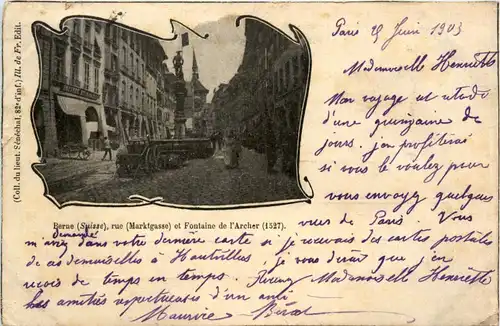 (Coll. du lieut. Sénéchal, 82e d'inf.) Ill. de Fr. Edit.
Berne (Suisse), rue (Marktgasse) et Fontaine de l'Archer (1527).
Paris 29 Juin 1903
Mademoiselle Henriette
Mon voyage est retardé
d'une quinzaine de
jours. j'en profiterai
si vous le voulez pour
vous envoyer quelques
vues de Paris. Vous
m'avez demandé dans votre dernière carte si je recevais des cartes postales
de ces demoiselles à Hautvillers, je vous dirai que j'en
reçois de temps en temps. Recevez Mademoiselle Henriette
les amitiés respectueuses d'un ami
Maurice